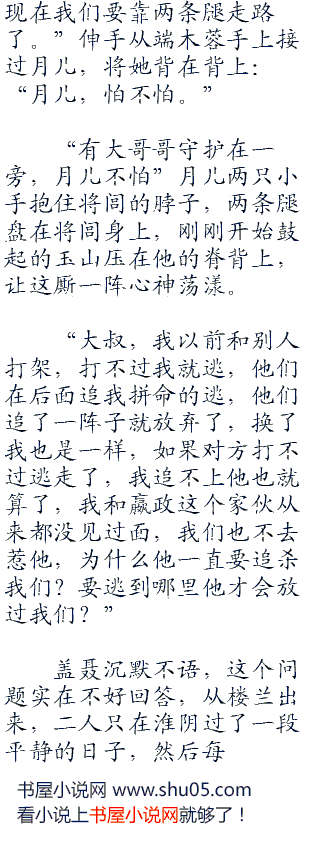 现在我们要靠两条腿走路
了。”伸手从端木蓉手上接
过月儿，将她背在背上：
“月儿，怕不怕。”
“有大哥哥守护在一
旁，月儿不怕”
“大叔，我以前和别人
打架，打不过我就逃，他们
在后面追我拼命的逃，他们
追了一阵子就放弃了，换了
我也是一样，如果对方打不
过逃走了，我追不上他也就
算了，我和嬴政这个家伙从
来都没见过面，我们也不去
惹他，为什么他一直要追杀
我们？要逃到哪里他才会放
过我们？”
盖聂沉默不语，这个问
题实在不好回答，从楼兰出
来，二人只在淮阴过了一段
平静的日子，然后每
书屋小说网 www.shu05.com
看小说上书屋小说网就够了！